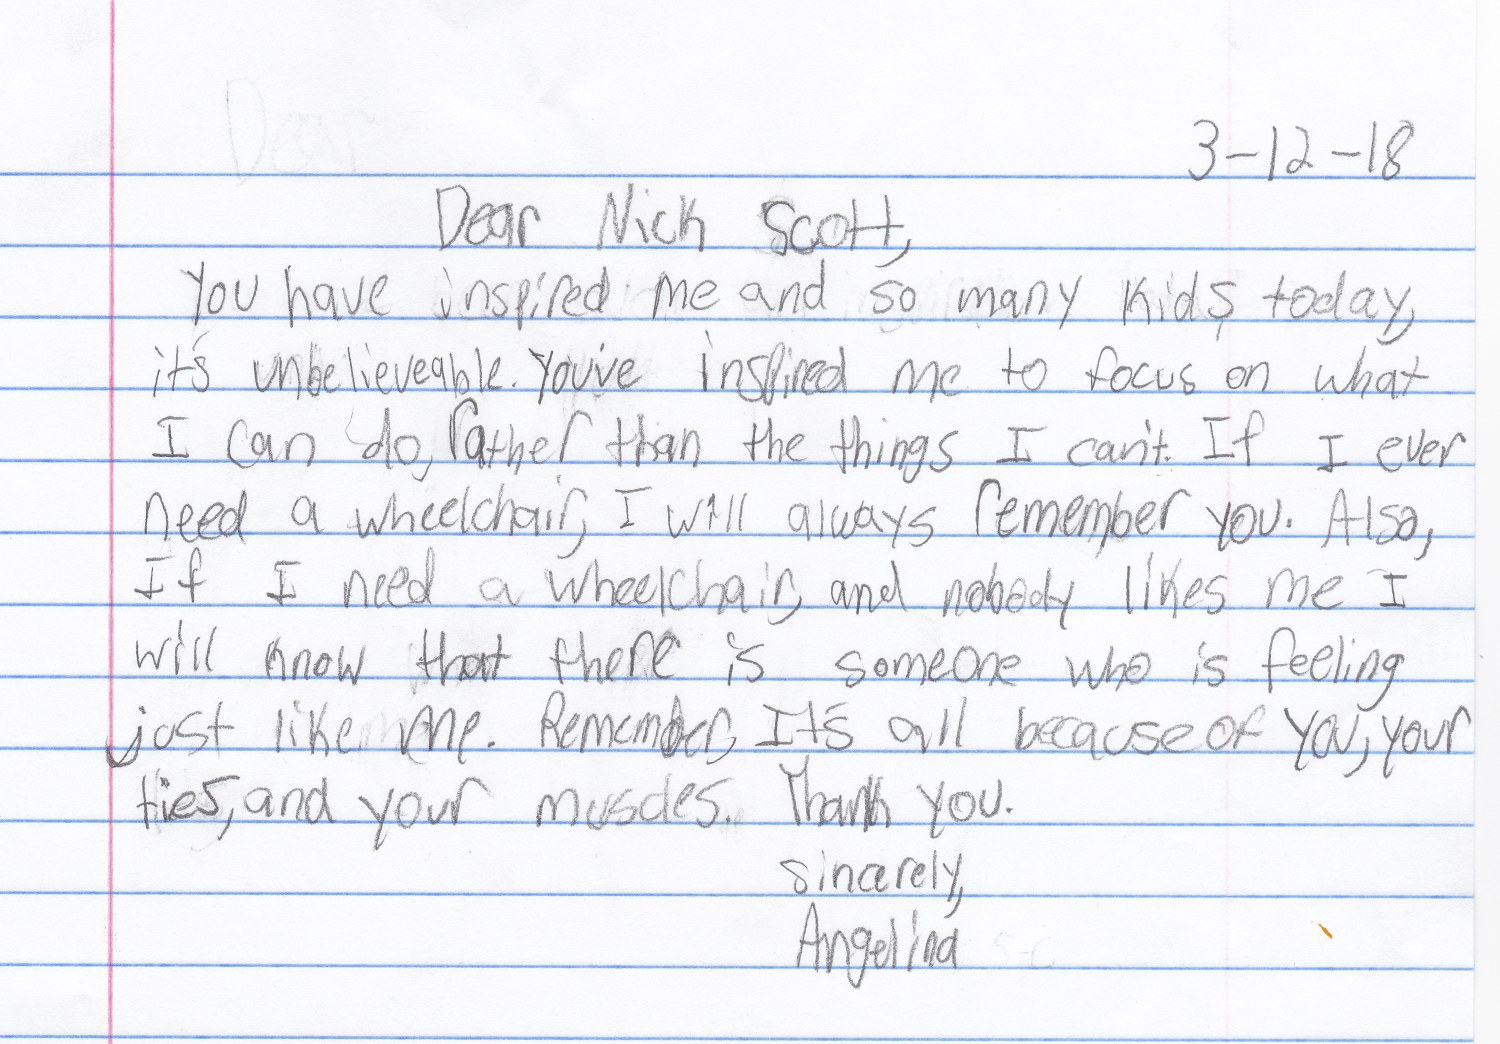 Dear
3-12-18
Dear Nick Scott,
You have inspired me and so many kids today,
it's unbelieveable. You've inspired me to focus on what
I can do, rather than the things I can't. If I ever
need a wheelchair, I will always remember you. Also,
If I need a wheelchair, and nobody likes me I
will know that there is someone who is feeling
just like me. Remember, It's all because of you, your
ties, and your muscles. Thank you.
sincerely,
Angelina